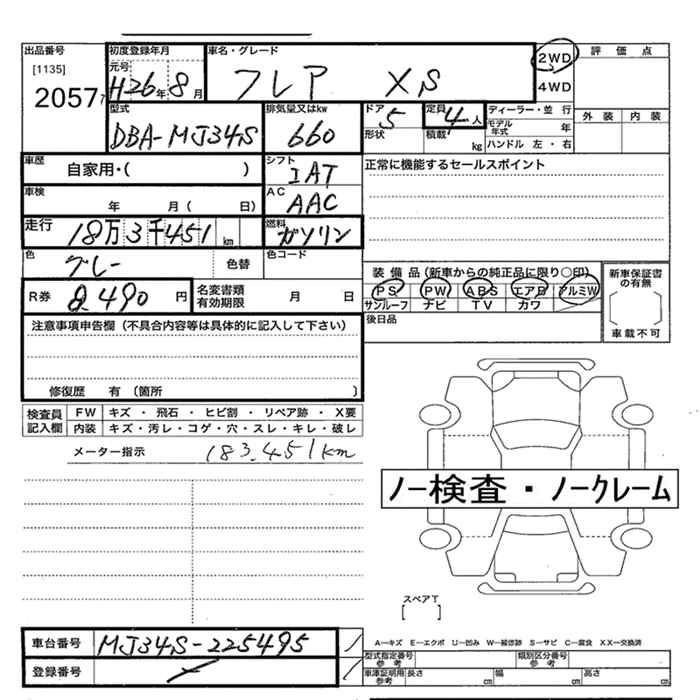 出品番号 初度登録年月 車名・グレード 評価点
[1135] 元号 2WD
20577 H26年8月 フレア XS 4WD
型式 排気量又はkw ドア 定員 ディーラー・並行 外装 内装
DBA-MJ34S 660 5 4人 モデル年式 年
形状 積載 kg ハンドル 左・右
車歴 自家用・( ) シフト 正常に機能するセールスポイント
IAT
車検 年 月( 日) AC AAC
走行 18万3千451km 燃料 ガソリン
色 グレー 色替 色コード 装備品(新車からの純正品に限り○印) 新車保証書の有無
R券 8,490円 名変書類有効期限 月 日 PS PW ABS エアB アルミW
サンルーフ ナビ TV カワ
車載不可
注意事項申告欄(不具合内容等は具体的に記入して下さい) 後日品
修復歴 有(箇所 )
検査員 FW キズ・飛石・ヒビ割・リペア跡・X要
記入欄 内装 キズ・汚レ・コゲ・穴・スレ・キレ・破レ
メーター指示 183,451km
ノー検査・ノークレーム
スペアT
[ ]
車台番号 MJ34S-225495
A-キズ E-エクボ U-凹み W-補修跡 S-サビ C-腐食 XX-交換済
登録番号 型式指定番号参考 類別区分番号参考
車庫証明用参考 長さ cm 幅 cm 高さ cm